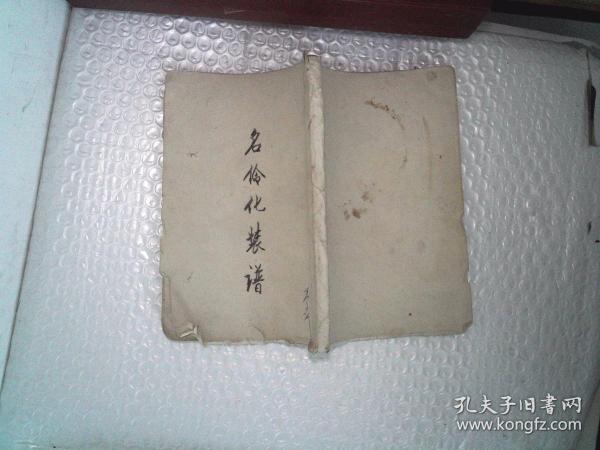 名伶化装谱
孔夫子旧書网
www.kongfz.com